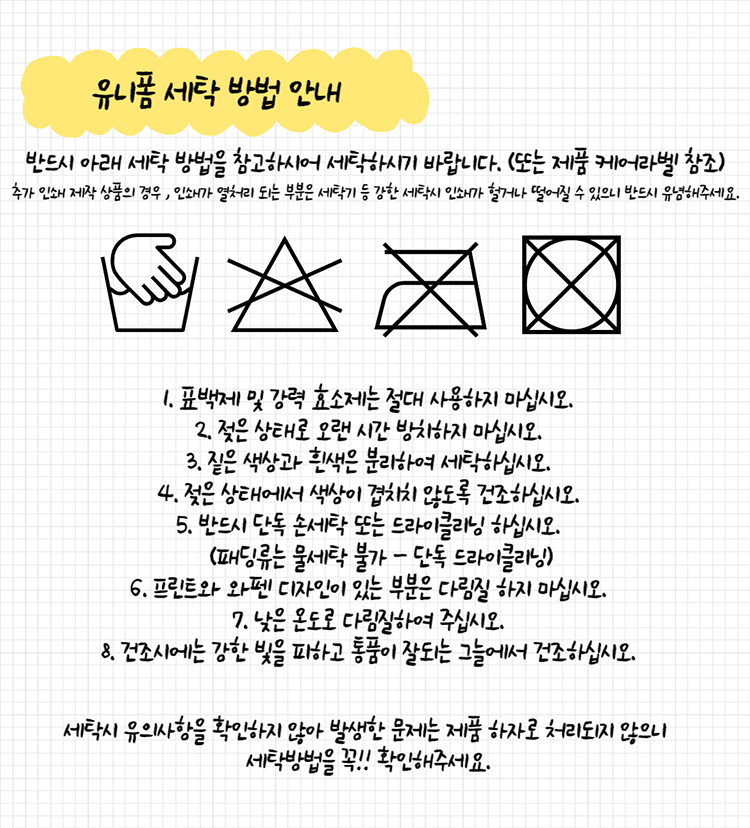 유니폼 세탁 방법 안내
반드시 아래 세탁 방법을 참고하시어 세탁하시기 바랍니다. (또는 제품 케어라벨 참조)
추가 인쇄 제작 상품의 경우, 인쇄가 열처리 되는 부분은 세탁기 등 강한 세탁시 인쇄가 헐거나 떨어질 수 있으니 반드시 유념해주세요.
1. 표백제 및 강력 효소제는 절대 사용하지 마십시오.
2. 젖은 상태로 오랜 시간 방치하지 마십시오.
3. 짙은 색상과 흰색은 분리하여 세탁하십시오.
4. 젖은 상태에서 색상이 겹치치 않도록 건조하십시오.
5. 반드시 단독 손세탁 또는 드라이클리닝 하십시오.
(패딩류는 물세탁 불가 - 단독 드라이클리닝)
6. 프린트와 와펜 디자인이 있는 부분은 다림질 하지 마십시오.
7. 낮은 온도로 다림질하여 주십시오.
8. 건조시에는 강한 빛을 피하고 통품이 잘되는 그늘에서 건조하십시오.
세탁시 유의사항을 확인하지 않아 발생한 문제는 제품 하자로 처리되지 않으니
세탁방법을 꼭!! 확인해주세요.